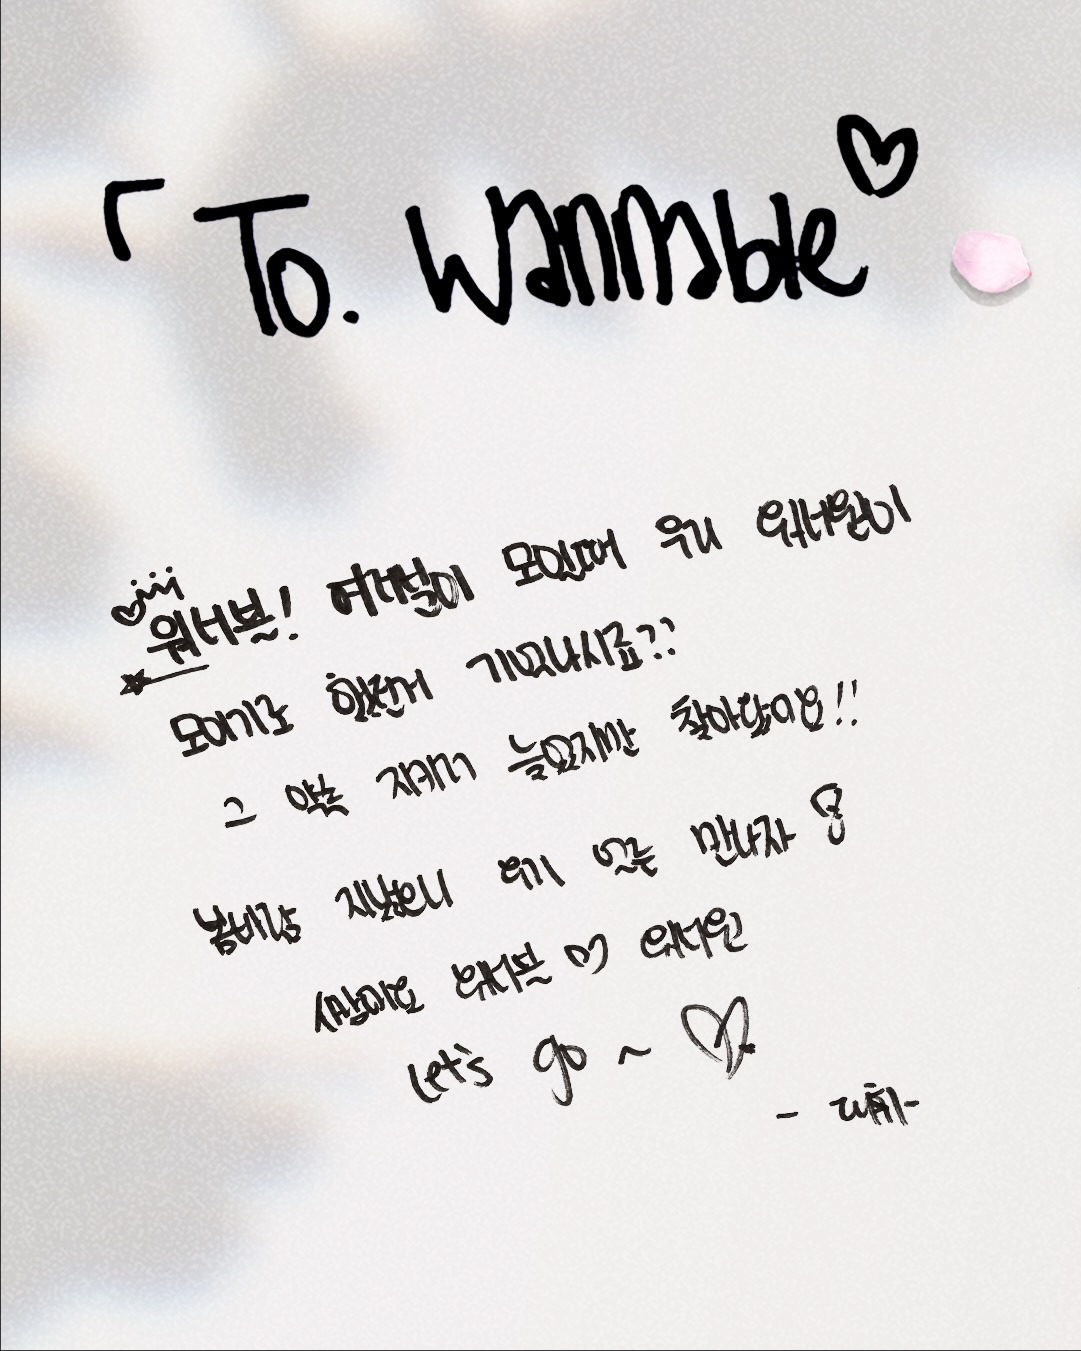 「 To. Wannable ♡
워너블! 여러분이 모인때 우리 워너원이
모이기로 했던거 기억나시죠??
그 약속 지키러 늦었지만 찾아왔어요!!
봄바람 지났으니 위기 없는 만나자
사랑해요 워너블 ♡ 워너원
Let's go ~ ♡